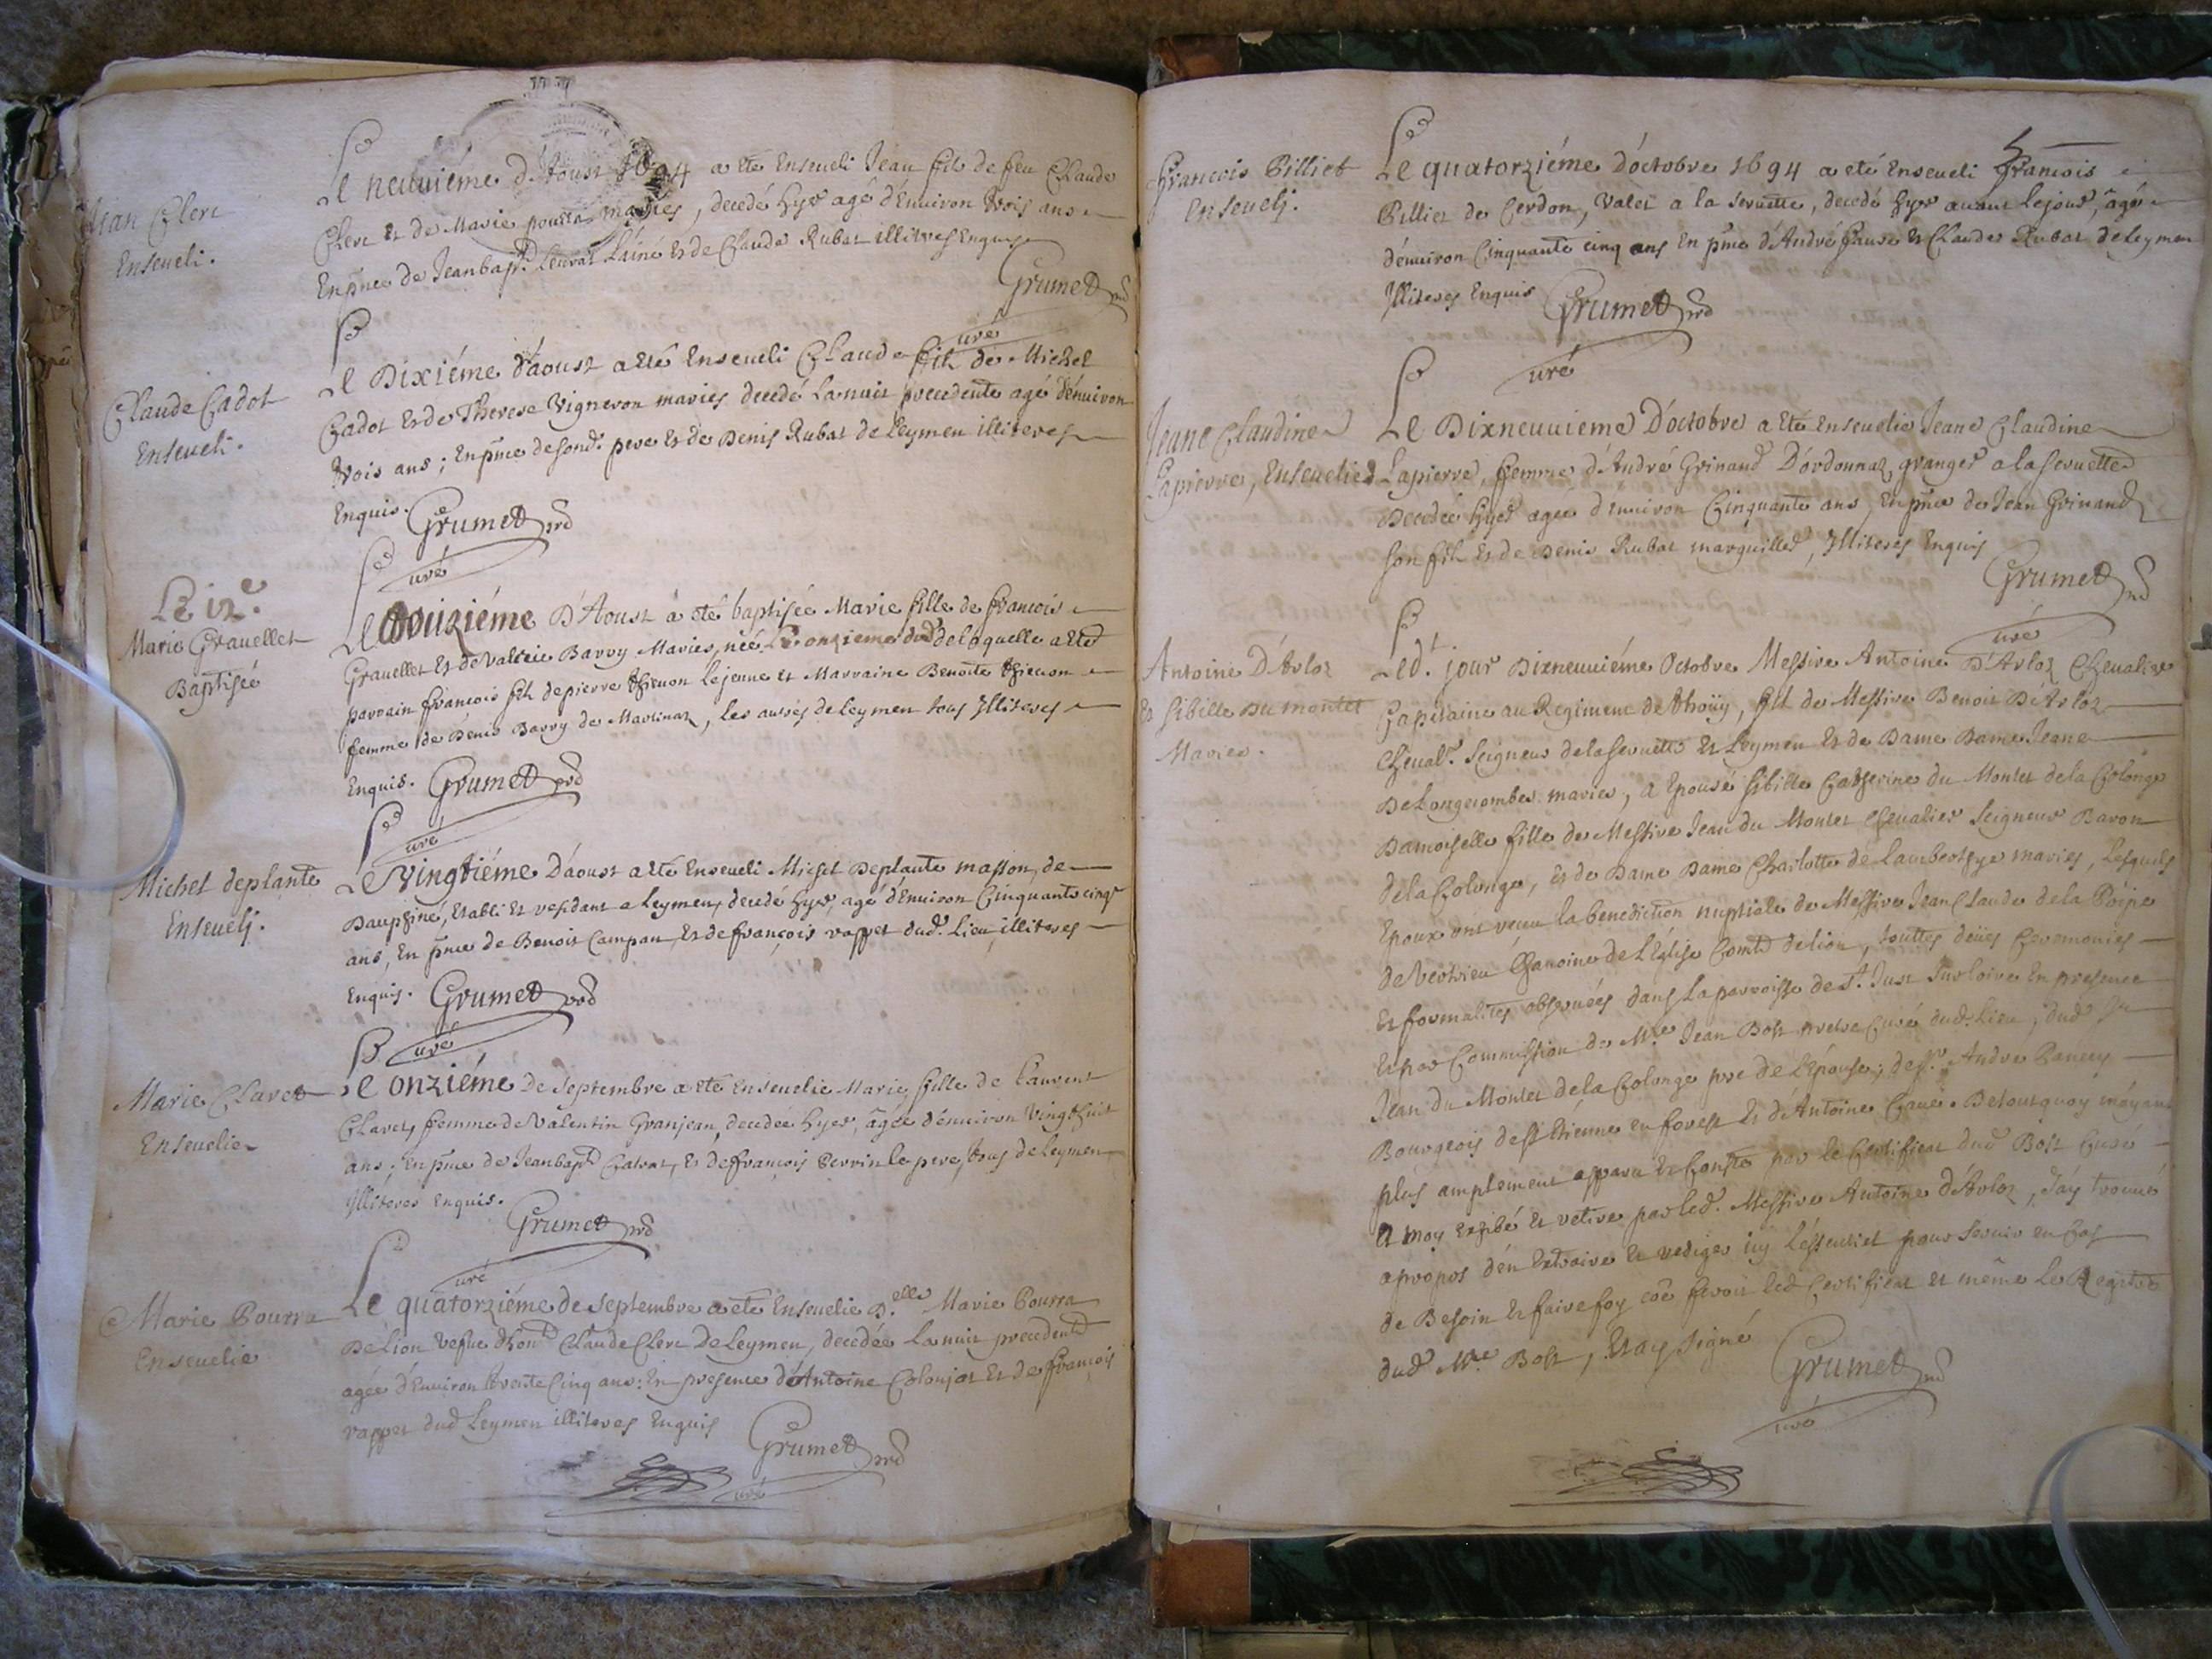 Jean Clerc
Enseueli.
Le neuuiéme d'Aoust 1694 a eté Enseueli Jean fils de feu Claude
Clerc et de Marie pourra mariés, decedé hyer agé d'Enuiron trois ans
En pnce de Jeanbapt. Leurat L'ainé et de Claude Rubat illiteres Enquis
Grumet curé
Claude Cadot
Enseueli.
Le Dixiéme d'aoust a eté Enseueli Claude fils de Michel
Cadot et de Therese Vigneron mariés decedé La nuit precedente agé d'énuiron
trois ans; En pnce de sond. pere et de Denis Rubat de Leymen illiteres
Enquis. Grumet
curé
Le 12.e
Marie Grauellet
Baptisée
Le douziéme D'Aoust a eté baptisée Marie fille de francois
Grauellet et de Barry Mariés, née Le onzieme dud. de laquelle a eté
parrain francois fils de pierre le jeune et Marraine Benoite
femme de Denis Barry de Martinaz, les autres de Leymen tous Illiteres
Enquis. Grumet
curé
Michel deplante
Enseuely.
Le Vingtiéme d'aoust a eté Enseueli Michel Deplante masson, de
Dauphiné, Etabli et residant a Leymen, decedé hyer, agé d'Enuiron Cinquante cinq
ans, En pnce de Benoit Campan, et de françois rappet dud. Lieu illiteres
Enquis. Grumet
curé
Marie Clavet
Enseuelie
Le onziéme de Septembre a eté enseuelie Marie, fille de Laurent
Clavet, femme de Valentin Granjean, decedée hyer, âgée d'énuiron Vingthuit
ans; En pnce de Jeanbapt. et de françois Perrin le pere, tous de Leymen
Illiteres Enquis.
Grumet
curé
Marie Pourra
Enseuelie
Le quatorziéme de Septembre a eté Enseuelie D.elle Marie Pourra
De Lion vefue d'hon. Claude Clerc de Leymen, decedée La nuit precedente
agée d'Enuiron trente Cinq ans: En presence d'Antoine Colonjat et de francois
rappet dud Leymen illiteres Enquis
Grumet
curé
François Pilliet
Enseuely.
Le quatorziéme d'octobre 1694 a eté Enseueli François
Pilliet de Cerdon, Valet a la Seruette, decedé hyer auant le jour, âgé
d'énuiron Cinquante cinq ans En pnce d'André et Claude Rubat de Leymen
Illiteres Enquis Grumet
curé
Jeane Claudine
Lapierre, Enseuelie
Le Dixneuuieme D'octobre a eté Enseuelie Jeane Claudine
Lapierre, femme d'André Grinand D'ordonnaz, granger a la Seruette
Decedée hyer agée d'enuiron Cinquante ans, En pnce de Jean Grinand
son fils et de Denis Rubat marguiller, Illiteres Enquis
Grumet
curé
Antoine D'Arloz
Et Sibille Du montet
Mariés.
Led.t jour Dixneuuiéme Octobre Messire Antoine D'Arloz Cheualier
Capitaine au Regiment de Thoüy, fils de Messire Benoit D'Arloz
Cheual.r Seigneur de la Seruette et Leymen et de Dame Dame Jeane
De Longecombe mariés, a Epousé Sibille Catherine du Montet de la Colonge
Damoiselle fille de Messire Jean du Montet Cheualier Seigneur Baron
de la Colonge, et de Dame Dame Charlotte de Lambertye mariés, Lesquels
Epoux ont receu la benediction nuptiale de Messire Jean Claude de la Poipe
de Vertrieu Chanoine de L'Église Comte de Lion, touttes deües Ceremonies
Et formalités obseruées dans la parroisse de S.t Just Sur loire En presence
Et par Commission de M.re Jean Bost pretre Curé dud. Lieu, dud S.r
Jean du Montet de la Colonge pere de L'épouse, de S.r Andre
Bourgeois de St Etienne en forest Et d'Antoine De tout quoy m'ayant
plus amplement apparu et Consté par le Certificat dud Bost Curé
A moy exhibé et retire par led. Messire Antoine d'Arloz, J'ay trouué
apropos d'en Extraire et rediger icy L'éssentiel pour Seruir en Cas
de Besoin et faire foy led Certificat et même Le Registre
dud M.re Bost, Et ay Signé
Grumet
curé